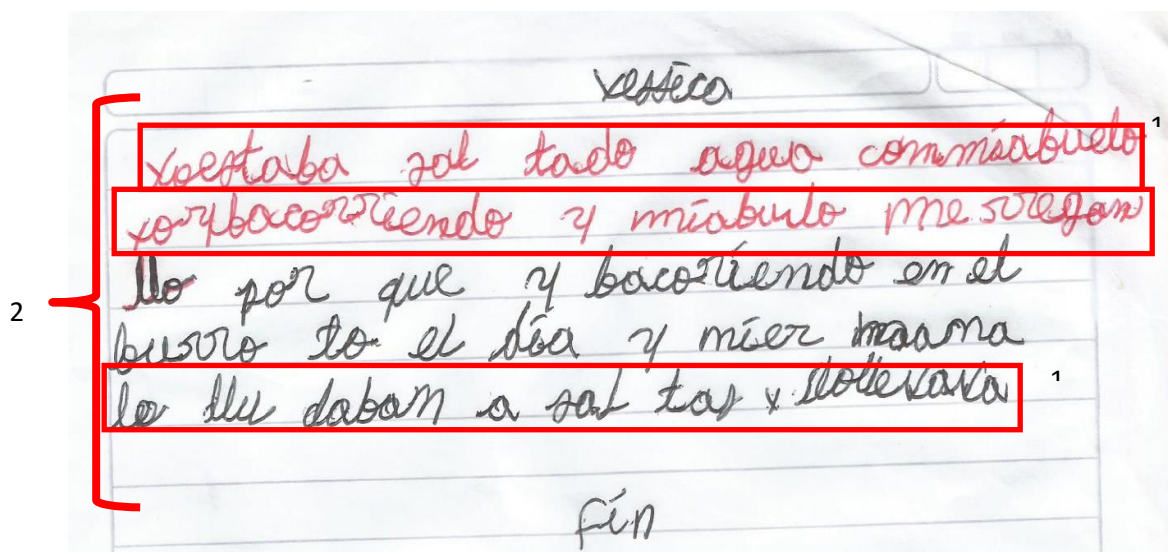 xessica
xoestaba sal tado agua commiabuelo 1
xorybacorriendo y miabulo me rregan
llo por que y bacorriendo en el
2
burro to el dia y mier maana
lo llu daban a sal tar x llollevava 1
fin